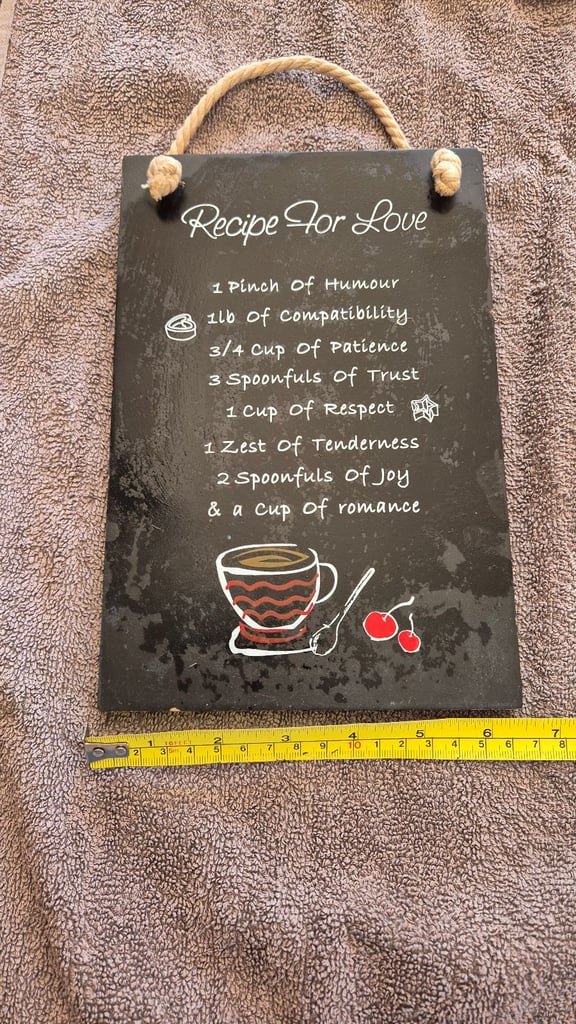 Recipe For Love
1 Pinch Of Humour
1lb Of Compatibility
3/4 Cup Of Patience
3 Spoonfuls Of Trust
1 Cup Of Respect
1 Zest Of Tenderness
2 Spoonfuls Of Joy
& a Cup Of romance
1 2 3 4 5 6 7
2 3 4 6 7 8 9 10 1 2 3 4 6 7